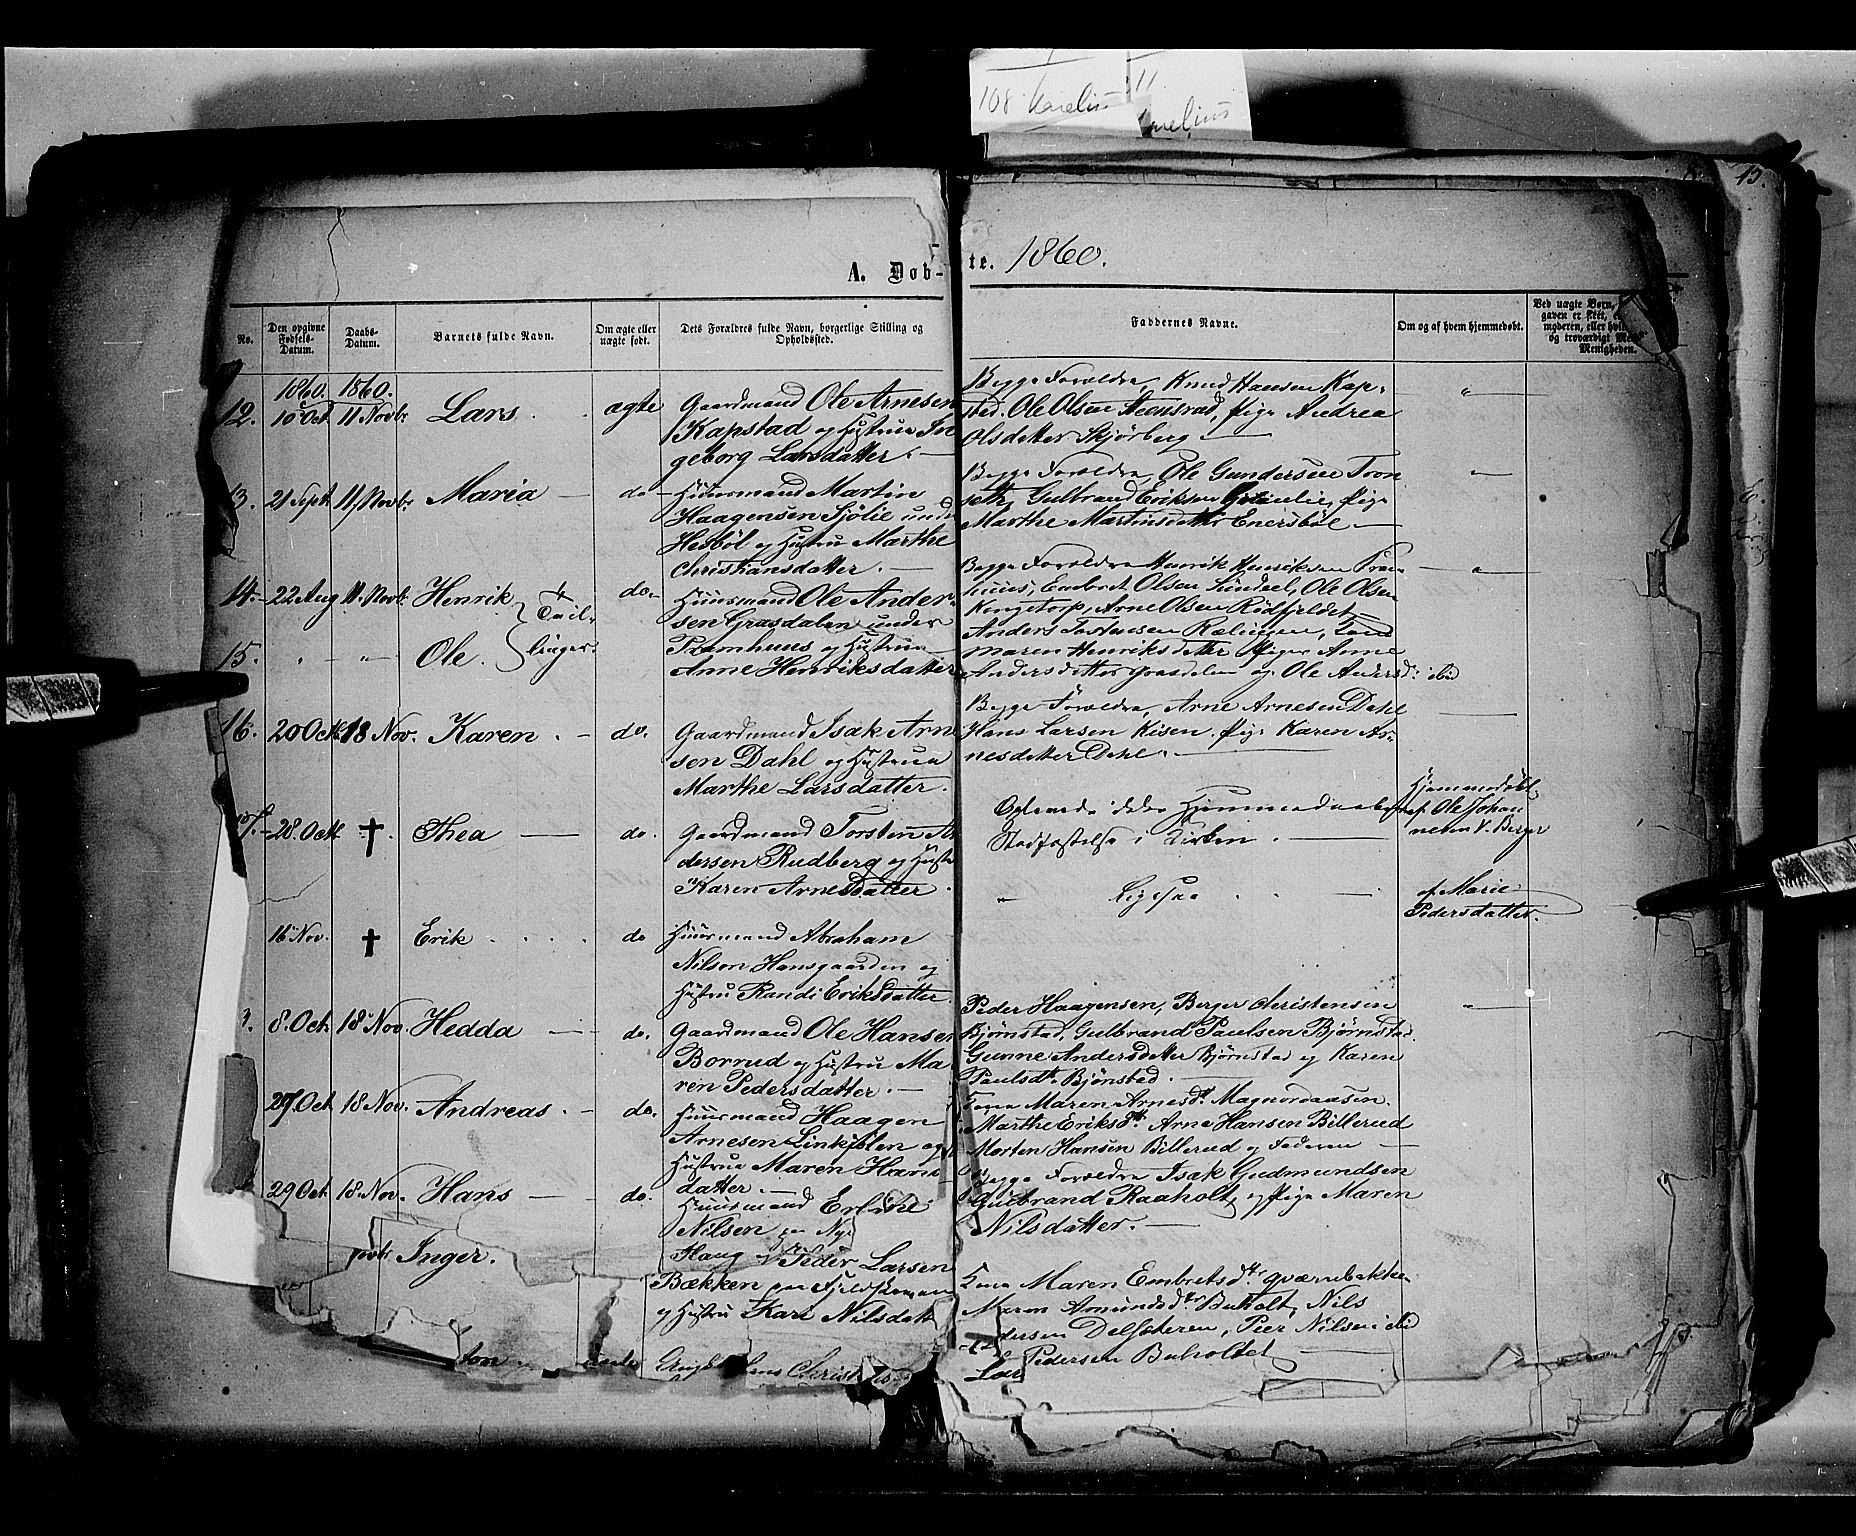 108 Karelius 11.
Karelius
15.
A. Døb-te. 1860.
No.
Den opgivne
Fødsels-
Datum.
Daabs-
Datum.
Barnets fulde Navn.
Om ægte eller
uægte født.
Dets Forældres fulde Navn, borgerlige Stilling og
Opholdssted.
Faddernes Navne.
Om og af hvem hjemmedøbt.
Ved uægte Børn,
gaven er skeet,
moderen, eller
og troværdigt
Menigheden.
1860. 1860.
12. 10 Oct 11 Novbr Lars ægte
Gaardmand Ole Arnesen
Kapstad og Hustrue In
geborg Larsdatter.
Begge Forældre, Knud Hansen Kap-
stad. Ole Olsen Steensrud, pige Andrea
Olsdatter Skjørberg
13. 21 Sept 11 Novbr Maria do
Huusmand Martin
Haagensen Sjölie under
Hesböl og Hustru Marthe
Christiansdatter.
Begge Forældre, Ole Gundersen Tron
seth, Gulbrand Eriksen Grinlie, pige
Marthe Martinsdatter Enersböl
14. 22 Aug 11. Novb. Henrik do.
Tvil-
linger.
15. " " Ole.
Huusmand Ole Ander-
sen Grasdalen under
Pramhuus og Hustrue
Anne Henriksdatter
Begge Forældre Henrik Henriksen Pram
huus, Embret Olsen Sundeel, Ole Olsen
Kongetorp, Arne Olsen Rödfjeldet
Anders Tostensen Rælingen, Kone
Maren Henriksdatter Piger Anne
Andersdatter Grasdalen og Ole Andersd: ibid
16. 20 Oct 18 Nov. Karen do.
Gaardmand Isak Arn
sen Dahl og Hustrue
Marthe Larsdatter.
Begge Forældre, Arne Arnesen Dahl
Hans Larsen Kisen. pige Karen Ar-
nesdatter Dahl.
17. 28. Oct † Thea do.
Gaardmand Torsten A
dersen Rudberg og Hustr
Karen Arnesdatter
Oplevede ikke Hjemmedaabens
Stadfæstelse i Kirken.
Hjemmedöbt
af Ole Johan
nesen v. Berger
16 Nov. † Erik do
Huusmand Abraham
Nilson Hansgaarden og
Hustru Randi Eriksdatter
" Ligesaa
af Marie
Pedersdatter.
8. Oct 18 Nov. Hedda do.
Gaardmand Ole Hansen
Borrud og Hustru Ma
ren Pedersdatter.
Peder Haagensen, Berger Christensen
Bjørnstad, Gulbrand Paulsen Bjørnstad.
Gunne Andersdatter Bjørnstad og Karen
Paulsdt. Bjønstad.
27. Oct 18 Nov. Andreas do.
Huusmand Haagen
Arnesen Linkjølen og
Hustrue Maren Hans
datter.
Kone Maren Arnesdt. Magnordaasen.
Marthe Eriksdt. Arne Hansen Billerud
Morten Hansen Billerud og Faderen
29 Oct 18. Nov. Hans do.
Huusmand Erik
Nilsen
Haug og
Begge Forældre Isak Gudmundsen
Gulbrand Raaholt, og pige Maren
Nilsdatter.
Novb Inger.
Peder Larsen
Bækken
og Hustru Kari Nilsdatt
Kone Maren Embretsdtr. Qværnbakke
Maren Amundsdtr Buholt, Nils
dersen Delsæteren, Peer Nilsen ibid
Pedersen Buholtet
Lars
ton
Ungk. Jens Christ